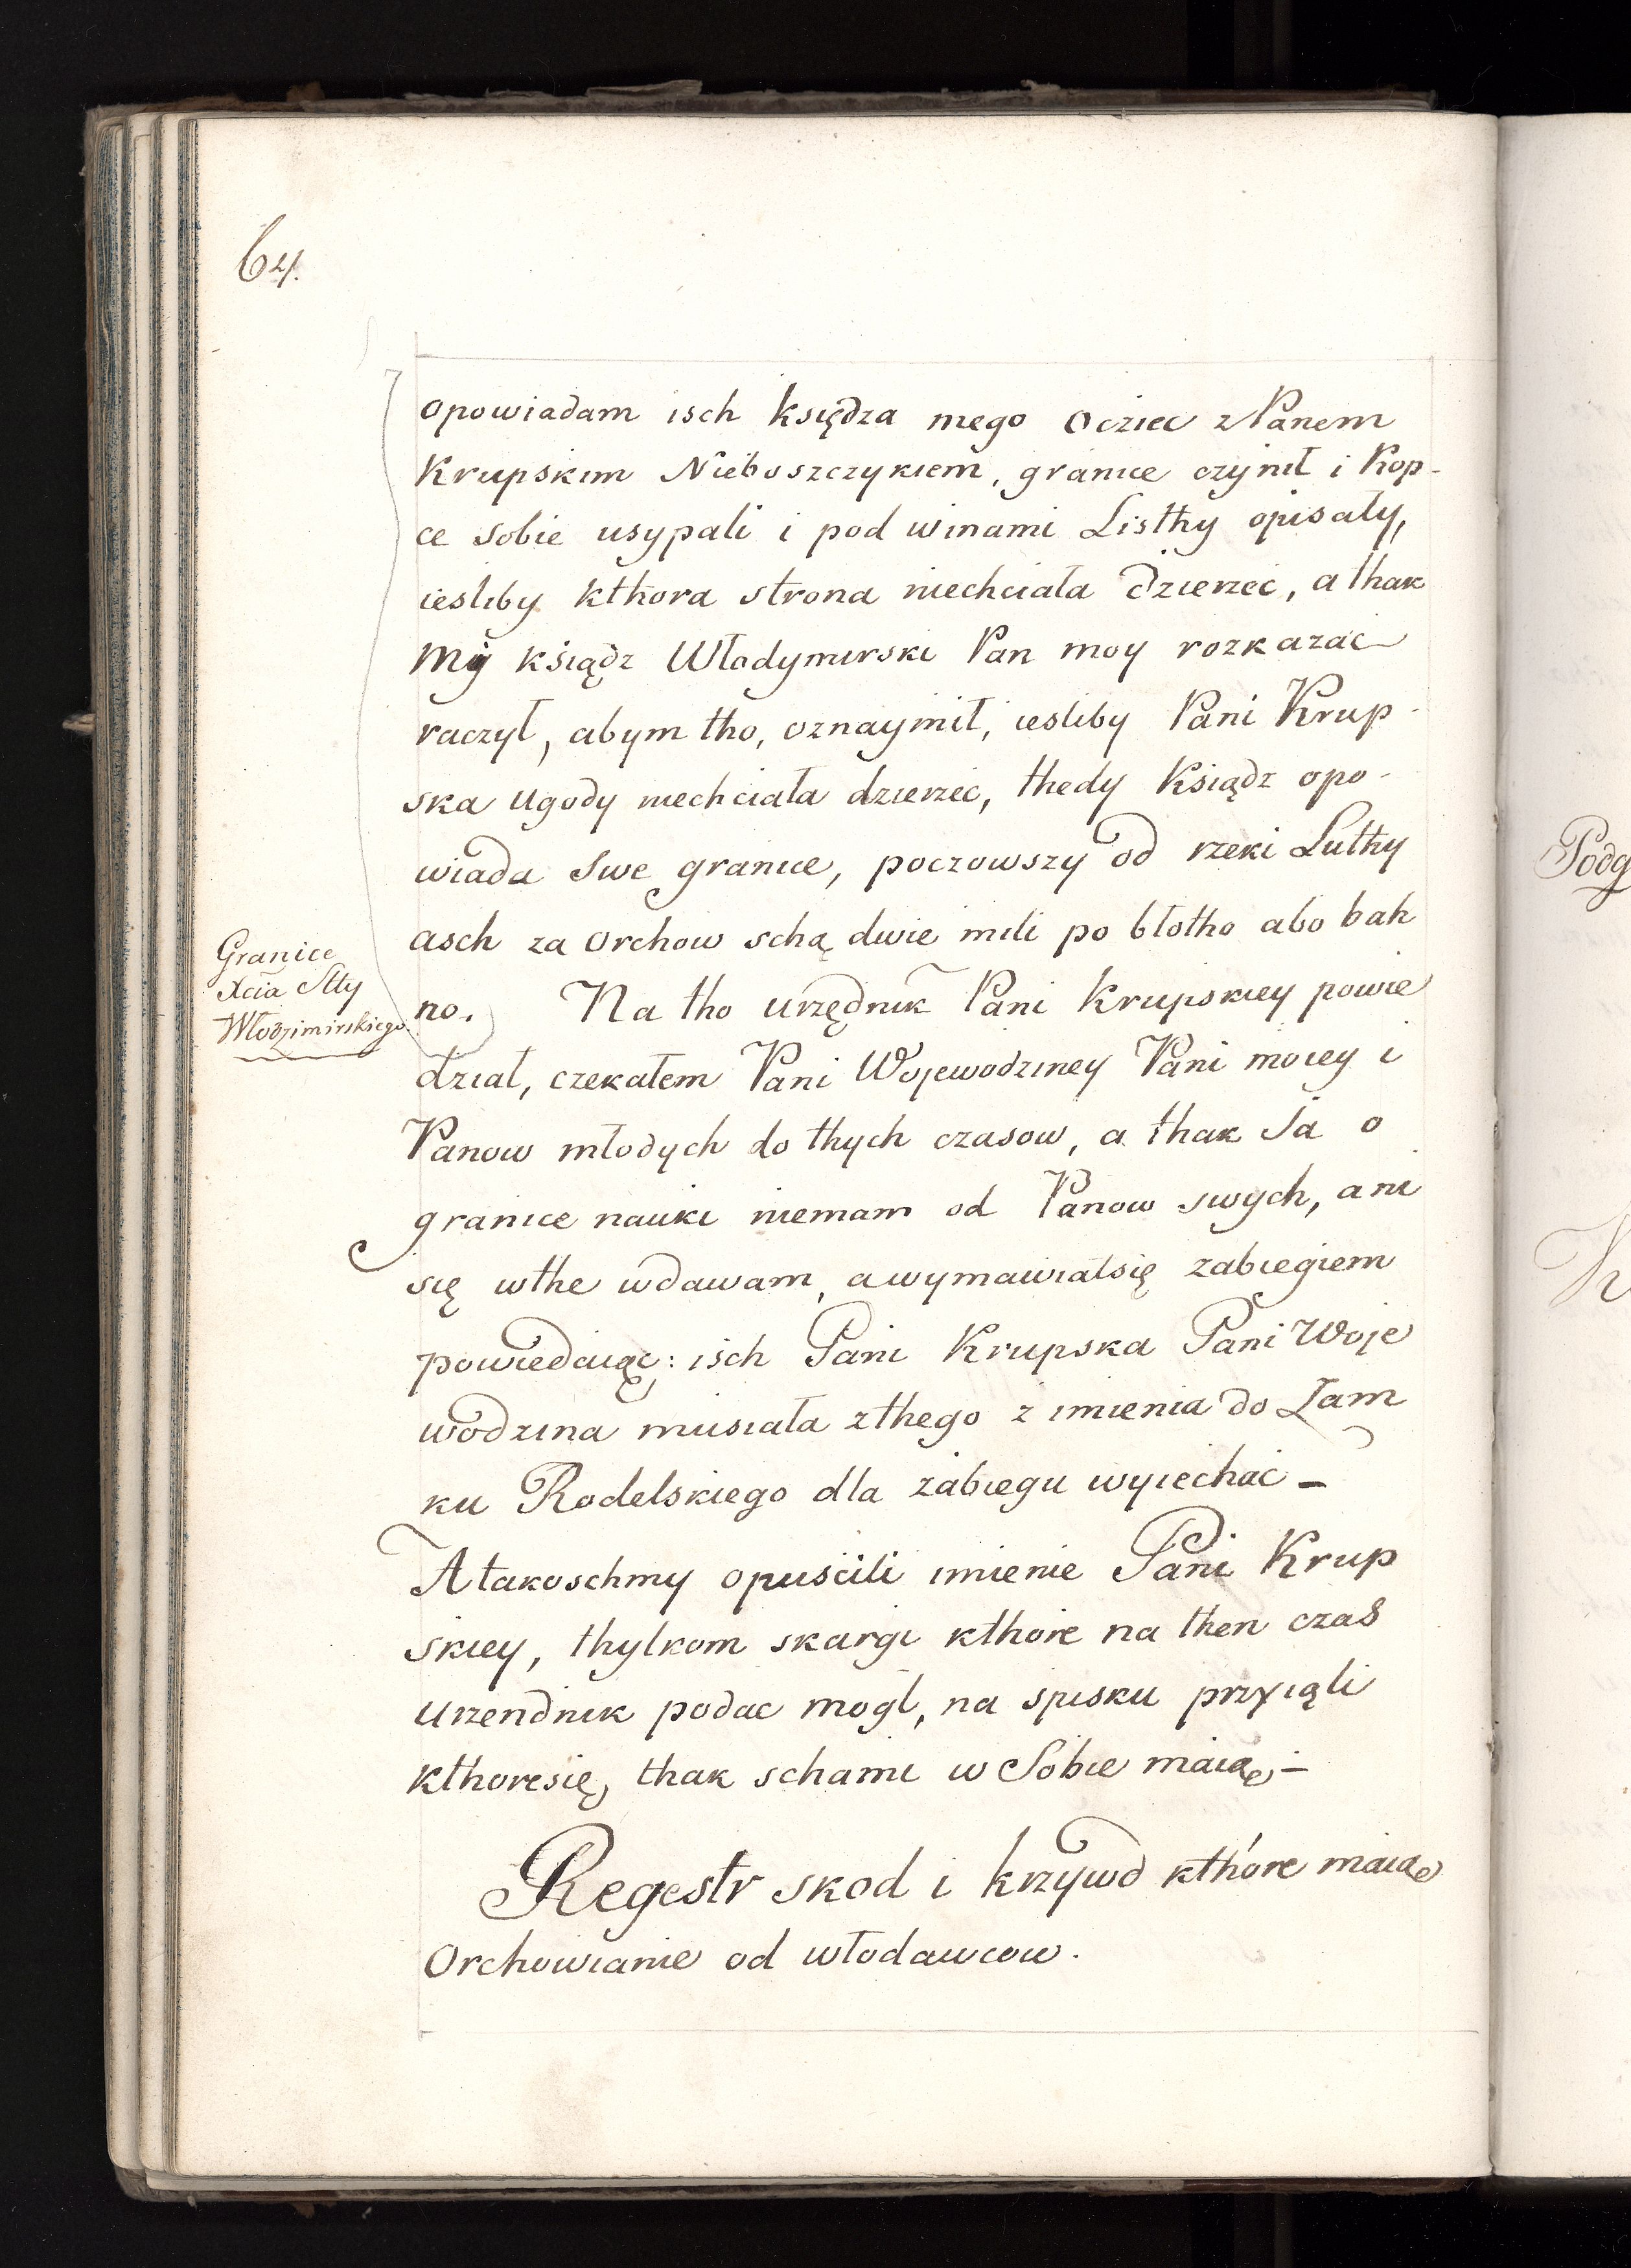 64.
opowiadam isch księdza mego Ocziec z Panem
Krupskim Nieboszczykiem, granice czynił i Kop-
ce sobie usypali i pod winami Listhy opisały,
iesliby kthora strona niechciała dzierzec, a thak
My ksiądz Władymirski Pan moy rozkazac
raczył, abym tho, oznaymił, iesliby Pani Krup-
ska Ugody niechciała dzierzec, thedy Ksiądz opo-
wiada Swe granice, poczowszy od rzeki Luthy
asch za Orchow schą dwie mili po błotho abo bah
no. Na tho urzędnik Pani Krupskiey powie
dział, czekałem Pani Wojewodziney Pani moiey i
Panow młodych do thych czasow, a thak Ja o
granice nauki niemam od Panow swych, ani
się wthe wdawam, a wymawiałsię zabiegiem
powiedaiąc: isch Pani Krupska Pani Woje
wodzina musiała zthego z imienia do Zam
ku Rodelskiego dla zabiegu wyiechac –
A takoschmy opuscili imienie Pani Krup
skiey, thylkom skargi kthore na then czas
Urzendnik podac mogł, na spisku przyiąli
kthoresię, thak schami w Sobie maią, –
Regestr skod i krzywd kthóre maią
Orchowianie od włodawcow.
Granice
Xcia Stty
Włodzimirskiego.
Podg
K